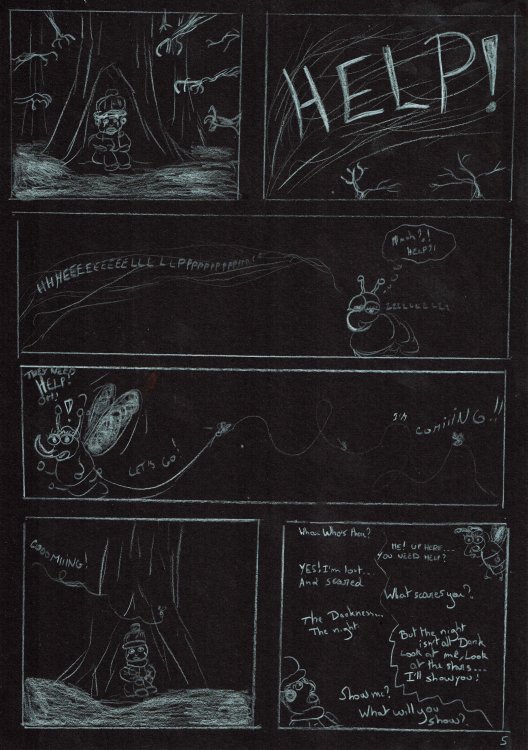 HELP!
HHHEEEEEEEEELLLLLLPPPPPPPPPPPPP
HELP?!
THEY NEED
HELP!
OH!
LET'S GO!
COMiiiNG!!
COOOMiiiNG!
Who's there?
ME! UP HERE...
YOU NEED HELP?
YES! I'm lost...
And scared
What scares you?
The Darkness...
The night
But the night
isn't all Dark
Look at me, Look
at the stars...
I'll show you!
Show me?
What will you
show?
5